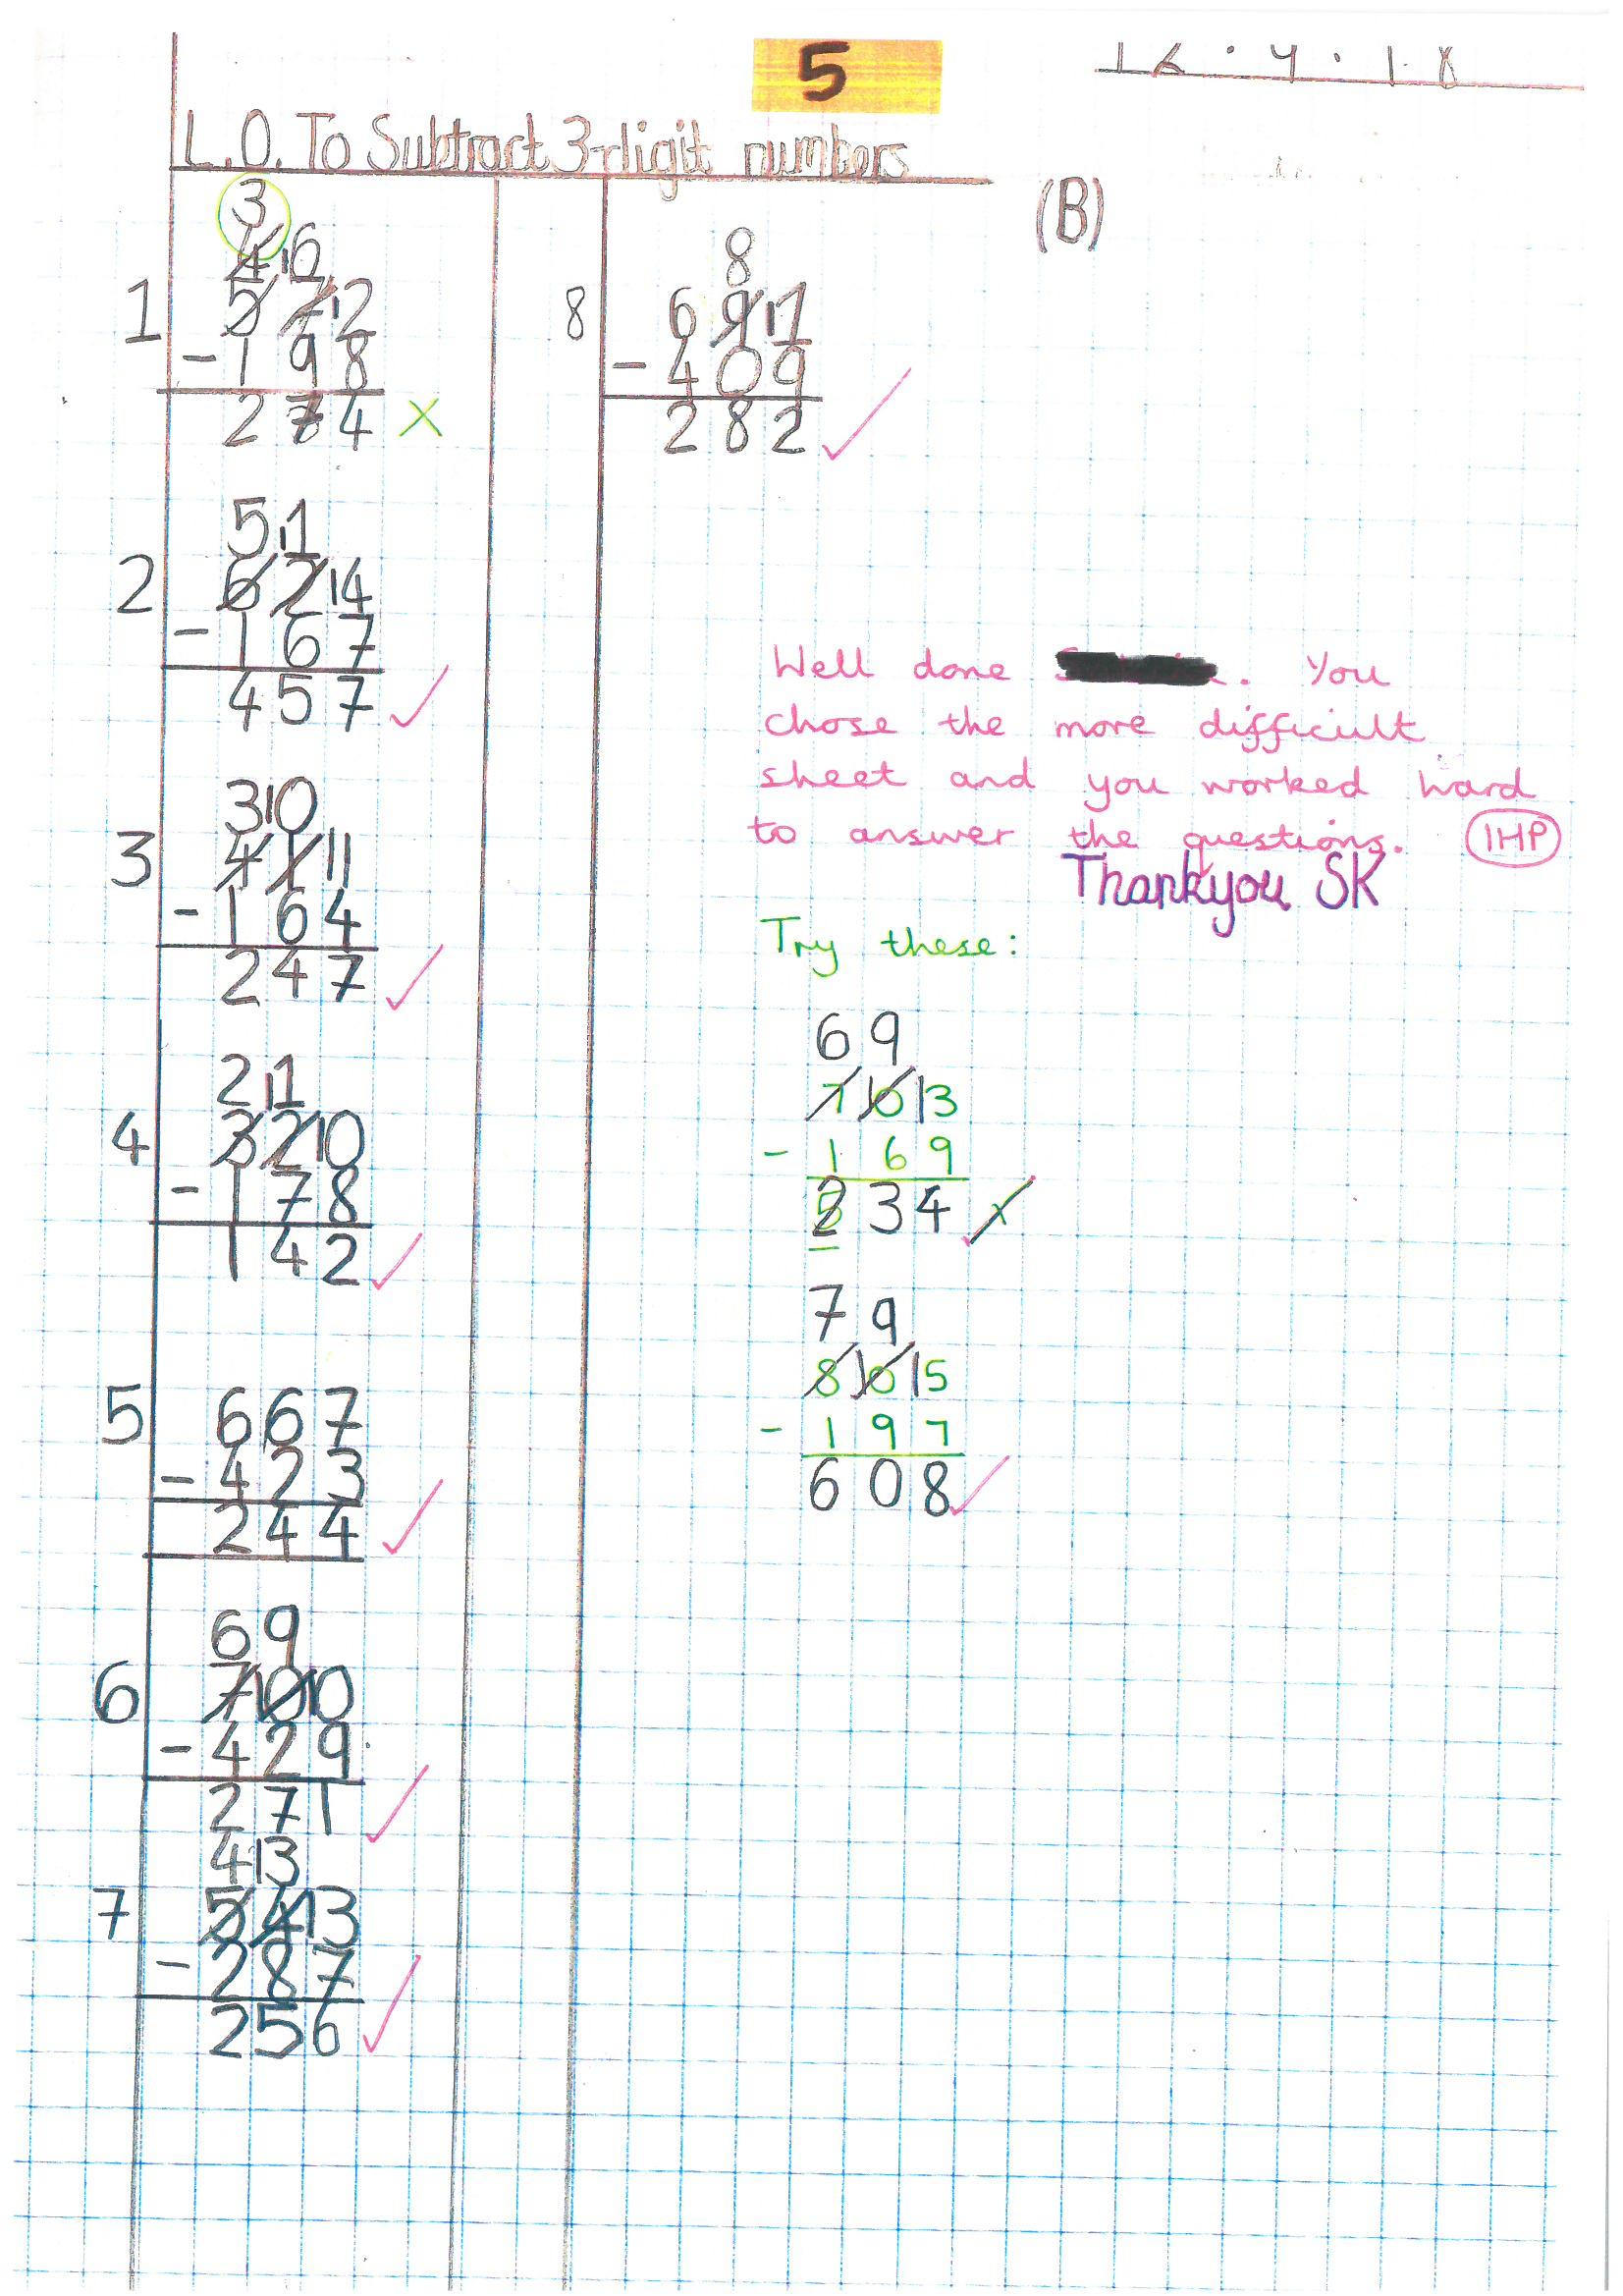 5
12.4.18
L.O. To Subtract 3-digit numbers
(B)
3
4 16
1 5 7 12
- 1 9 8
2 7 4 ×
5 11
2 6 2 14
- 1 6 7
4 5 7 ✓
3 10
3 4 1 11
- 1 6 4
2 4 7 ✓
2 11
4 3 2 10
- 1 7 8
1 4 2 ✓
5 6 6 7
- 4 2 3
2 4 4 ✓
6 9
6 7 10 10
- 4 2 9
2 7 1 ✓
4 13
7 5 4 13
- 2 8 7
2 5 6 ✓
8
8 6 9 11
- 4 0 9
2 8 2 ✓
Well done . You
chose the more difficult
sheet and you worked hard
to answer the questions. 1HP
Thankyou SK
Try these:
6 9
7 10 13
- 1 6 9
5 3 4 ✓
7 9
8 10 15
- 1 9 7
6 0 8 ✓